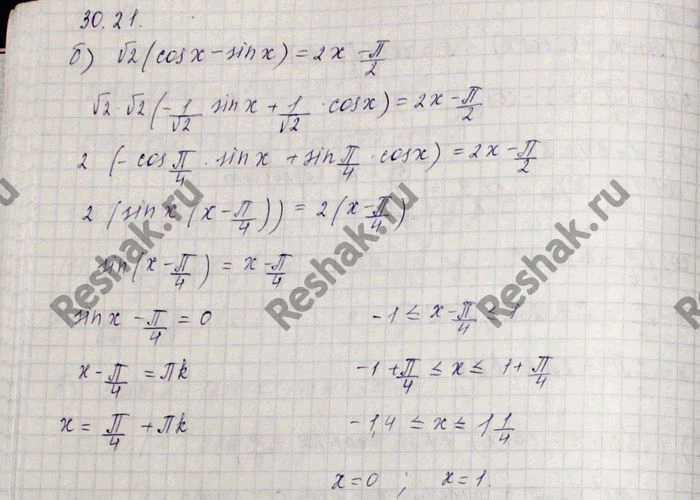 30.21.
б) √2(cosx-sinx)=2x-π/2
√2·√2(-1/√2 sinx+1/√2·cosx)=2x-π/2
2 (-cosπ/4·sinx+sinπ/4·cosx)=2x-π/2
2 (sinx(x-π/4))=2(x-π/4)
sin(x-π/4)=x-π/4
sinx-π/4=0 -1≤x-π/4≤1
x-π/4=πk -1+π/4≤x≤1+π/4
x=π/4+πk -1,4≤x≤1 1/4
x=0; x=1.
Reshak.ru
Reshak.ru
Reshak.ru